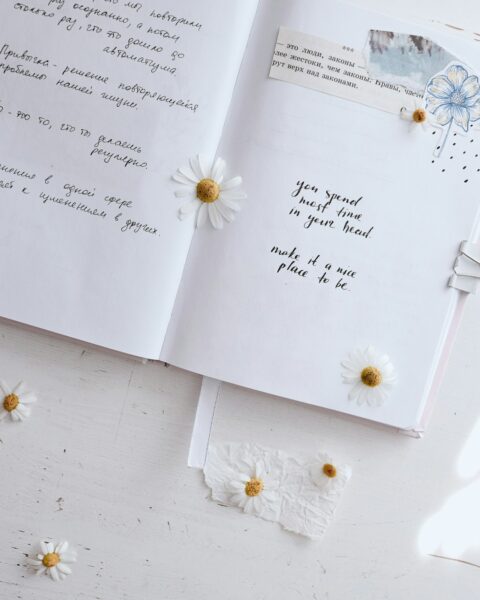 мы повторили
раз осознанно, а потом
столько раз, что это дошло до
автоматизма.
Привычка - решение повторяющейся
проблемы нашей жизни.
- то, что ты делаешь
регулярно.
в одной сфере
к изменениям в других.
***
— это люди, законы —
лее жестоки, чем законы: нравы,
рут верх над законами.
you spend
most time
in your head.
make it a nice
place to be.